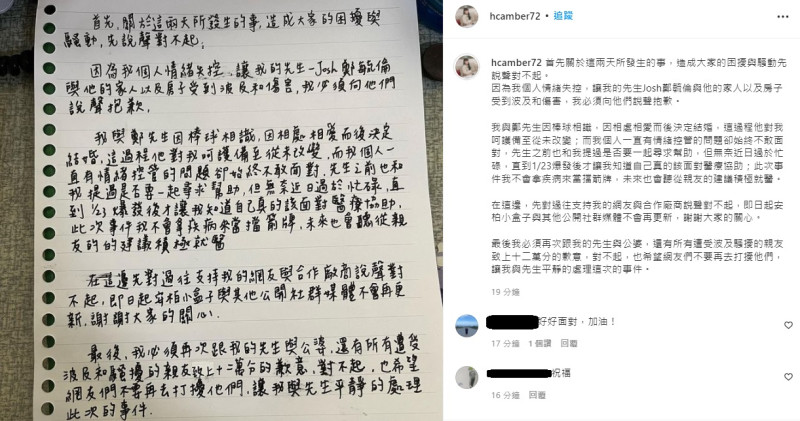 首先,關於這兩天所發生的事,造成大家的困擾與
騷動,先說聲對不起。
因為我個人情緒失控,讓我的先生-Josh 鄭毓倫
與他的家人以及房子受到波及和傷害,我必須向他們
說聲抱歉。
我與鄭先生因棒球相識,因相處相愛而後決定
結婚,這過程他對我呵護備至從未改變,而我個人一
直有情緒控管的問題卻始終不敢面對,先生之前也和
我提過是否要一起尋求幫助,但無奈近日過於忙碌,直
到1/23爆發後才讓我知道自己真的該面對醫療協助,
此次事件我不會拿疾病來當擋箭牌,未來也會聽從親
友的的建議積極就醫
在這邊先對過往支持我的網友與合作廠商說聲對
不起,即日起安柏小盒子與其他公開社群媒體不會再更
新,謝謝大家的關心.
最後,我必須再次跟我的先生與公婆,還有所有遭受
波及和騷擾的親友致上十二萬分的歉意,對不起,也希望
網友們不要再去打擾他們,讓我與先生平靜的處理
此次的事件.
hcamber72 • 追蹤
hcamber72 首先關於這兩天所發生的事,造成大家的困擾與騷動先
說聲對不起。
因為我個人情緒失控,讓我的先生Josh鄭毓倫與他的家人以及房子
受到波及和傷害,我必須向他們說聲抱歉。
我與鄭先生因棒球相識,因相處相愛而後決定結婚,這過程他對我
呵護備至從未改變;而我個人一直有情緒控管的問題卻始終不敢面
對,先生之前也和我提過是否要一起尋求幫助,但無奈近日過於忙
碌,直到1/23爆發後才讓我知道自己真的該面對醫療協助;此次事
件我不會拿疾病來當擋箭牌,未來也會聽從親友的建議積極就醫。
在這邊,先對過往支持我的網友與合作廠商說聲對不起,即日起安
柏小盒子與其他公開社群媒體不會再更新,謝謝大家的關心。
最後我必須再次跟我的先生與公婆,還有所有遭受波及騷擾的親友
致上十二萬分的歉意,對不起,也希望網友們不要再去打擾他們,
讓我與先生平靜的處理這次的事件。
19 分鐘
好好面對,加油!
17 分鐘 1 個讚 回覆
祝福
16 分鐘 回覆